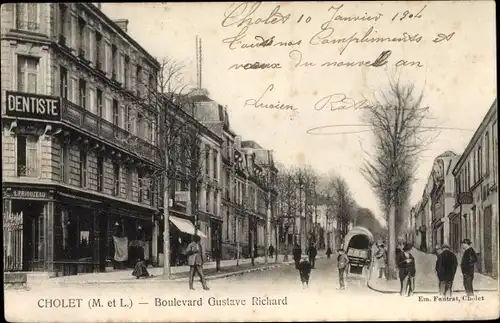 Cholet 10 Janvier 1904
Toutes nos Compliments et
voeux du nouvel an
Lucien
DENTISTE
CHOLET (M. et L.) — Boulevard Gustave Richard
Em. Fautrat, Cholet